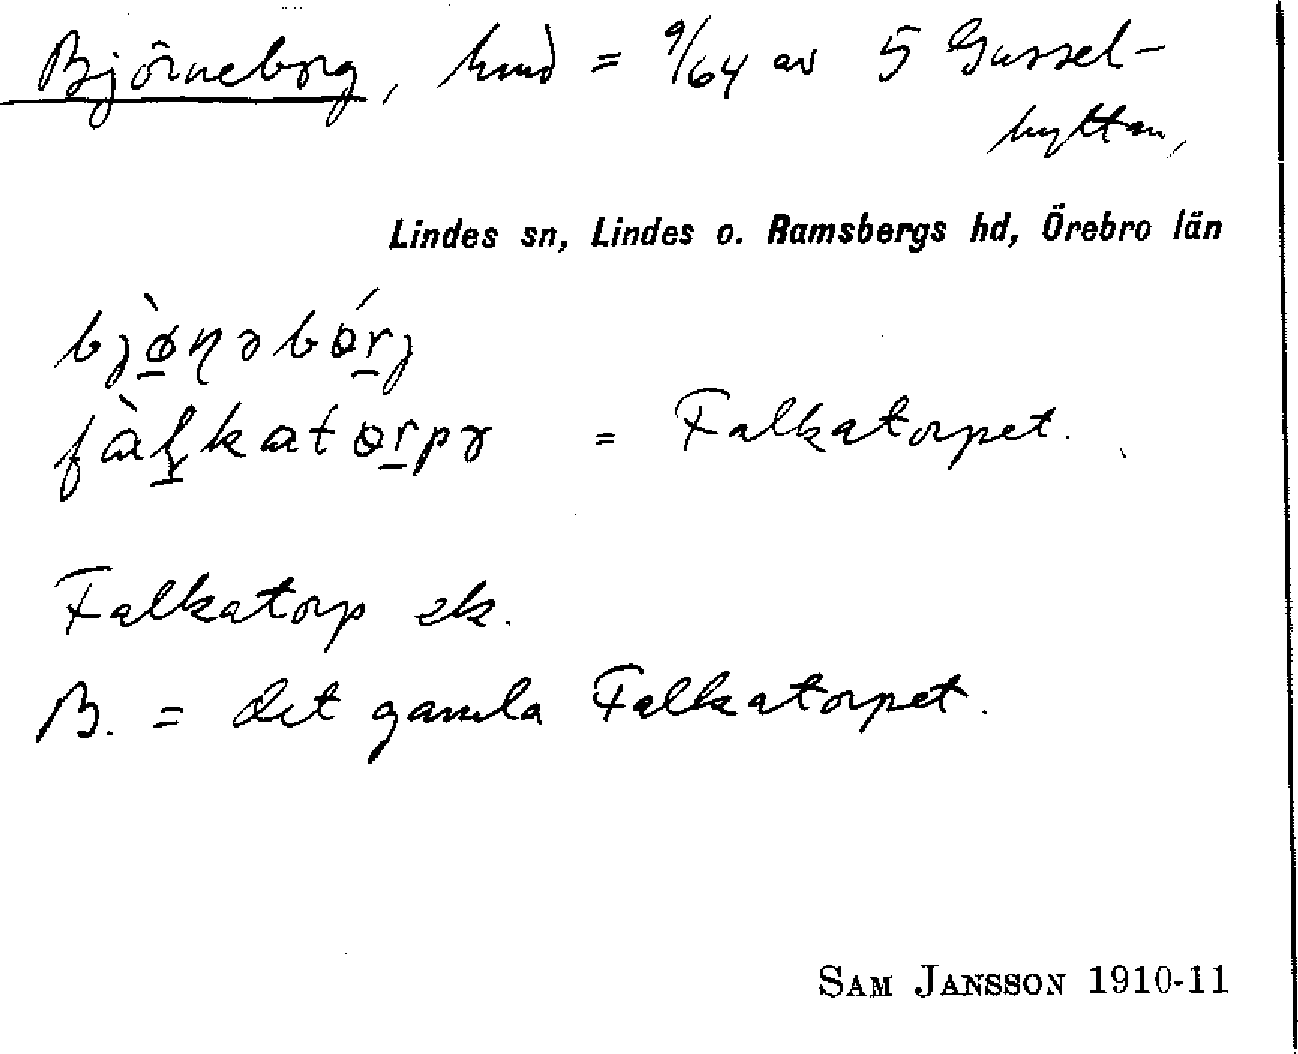 Björneborg, hmd = 9/64 av 5 Gussel-
hyttan,
Lindes sn, Lindes o. Ramsbergs hd, Örebro län
= Falkatorpet.
Falkatorp ek.
B. = det gamla Falkatorpet.
SAM JANSSON 1910-11